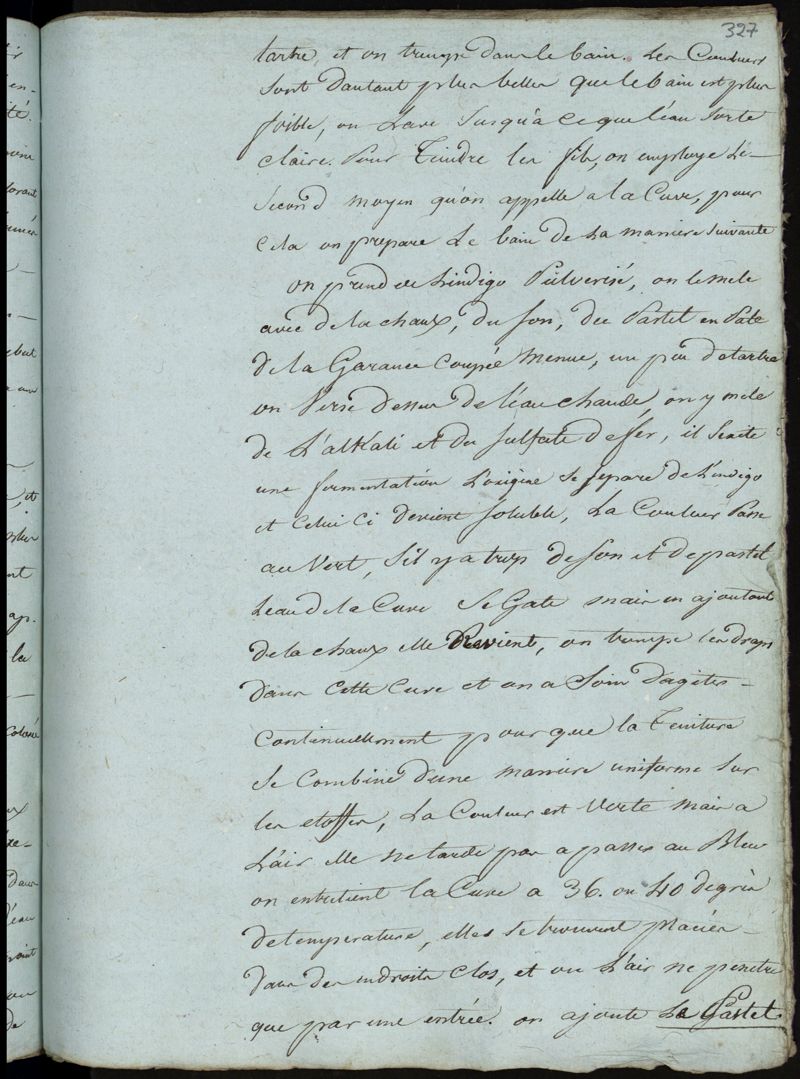 327
tartre, et on trempe dans le bain. Les Couleurs
sont dautant plus belles que le bain est plus
foible, on Lave Jusqu'à ce que l'eau sorte
claire. Pour Teindre les fils, on employe Le
second moyen qu'on appelle a la Cuve, pour
cela on prepare Le bain de La maniere suivante
on prend de L'indigo Pulverisé, on le mele
avec de la chaux, du son, du Pastel en Pate
de la Garance Coupée Menue, un peu de tartre
on Verse dessus de l'eau chaude, on y mele
de L'alKali et du sulfate de fer, il s'excite
une fermentation L'oxigène se separe de L'indigo
et Celui Ci devient soluble, La Couleur Passe
au Vert, s'il y a trop de son et de pastel
L'eau de la Cuve se Gate mais en ajoutant
de la chaux elle Revient, on trempe les draps
dans Cette Cuve et on a soin d'agiter
Continuellement pour que la Teinture
se Combine d'une maniere uniforme sur
les etoffes, La Couleur est Verte mais a
L'air elle ne tarde pas a passer au Bleu
on entretient la Cuve a 36. ou 40 degrés
de temperature, elles se trouvent placées
dans des endroits Clos, et ou L'air ne penetre
que par une entrée. on ajoute Le Pastel